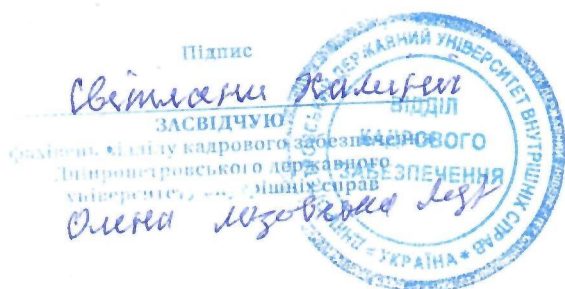 Підпис
Світлани Халимон
ЗАСВІДЧУЮ
фахівець відділу кадрового забезпечення
Дніпропетровського державного
університету внутрішніх справ
Олена Лозовська
ДЕРЖАВНИЙ УНІВЕРСИТЕТ ВНУТРІШНІХ СПРАВ
* УКРАЇНА *
ВІДДІЛ
КАДРОВОГО
ЗАБЕЗПЕЧЕННЯ